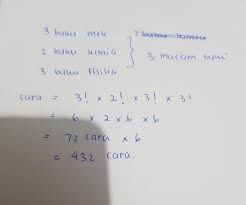 3 buku mtk
2 buku kimia
3 buku fisika
3 macam buku
cara = 3! x 2! x 3! x 3!
= 6 x 2 x 6 x 6
= 72 cara x 6
= 432 cara.